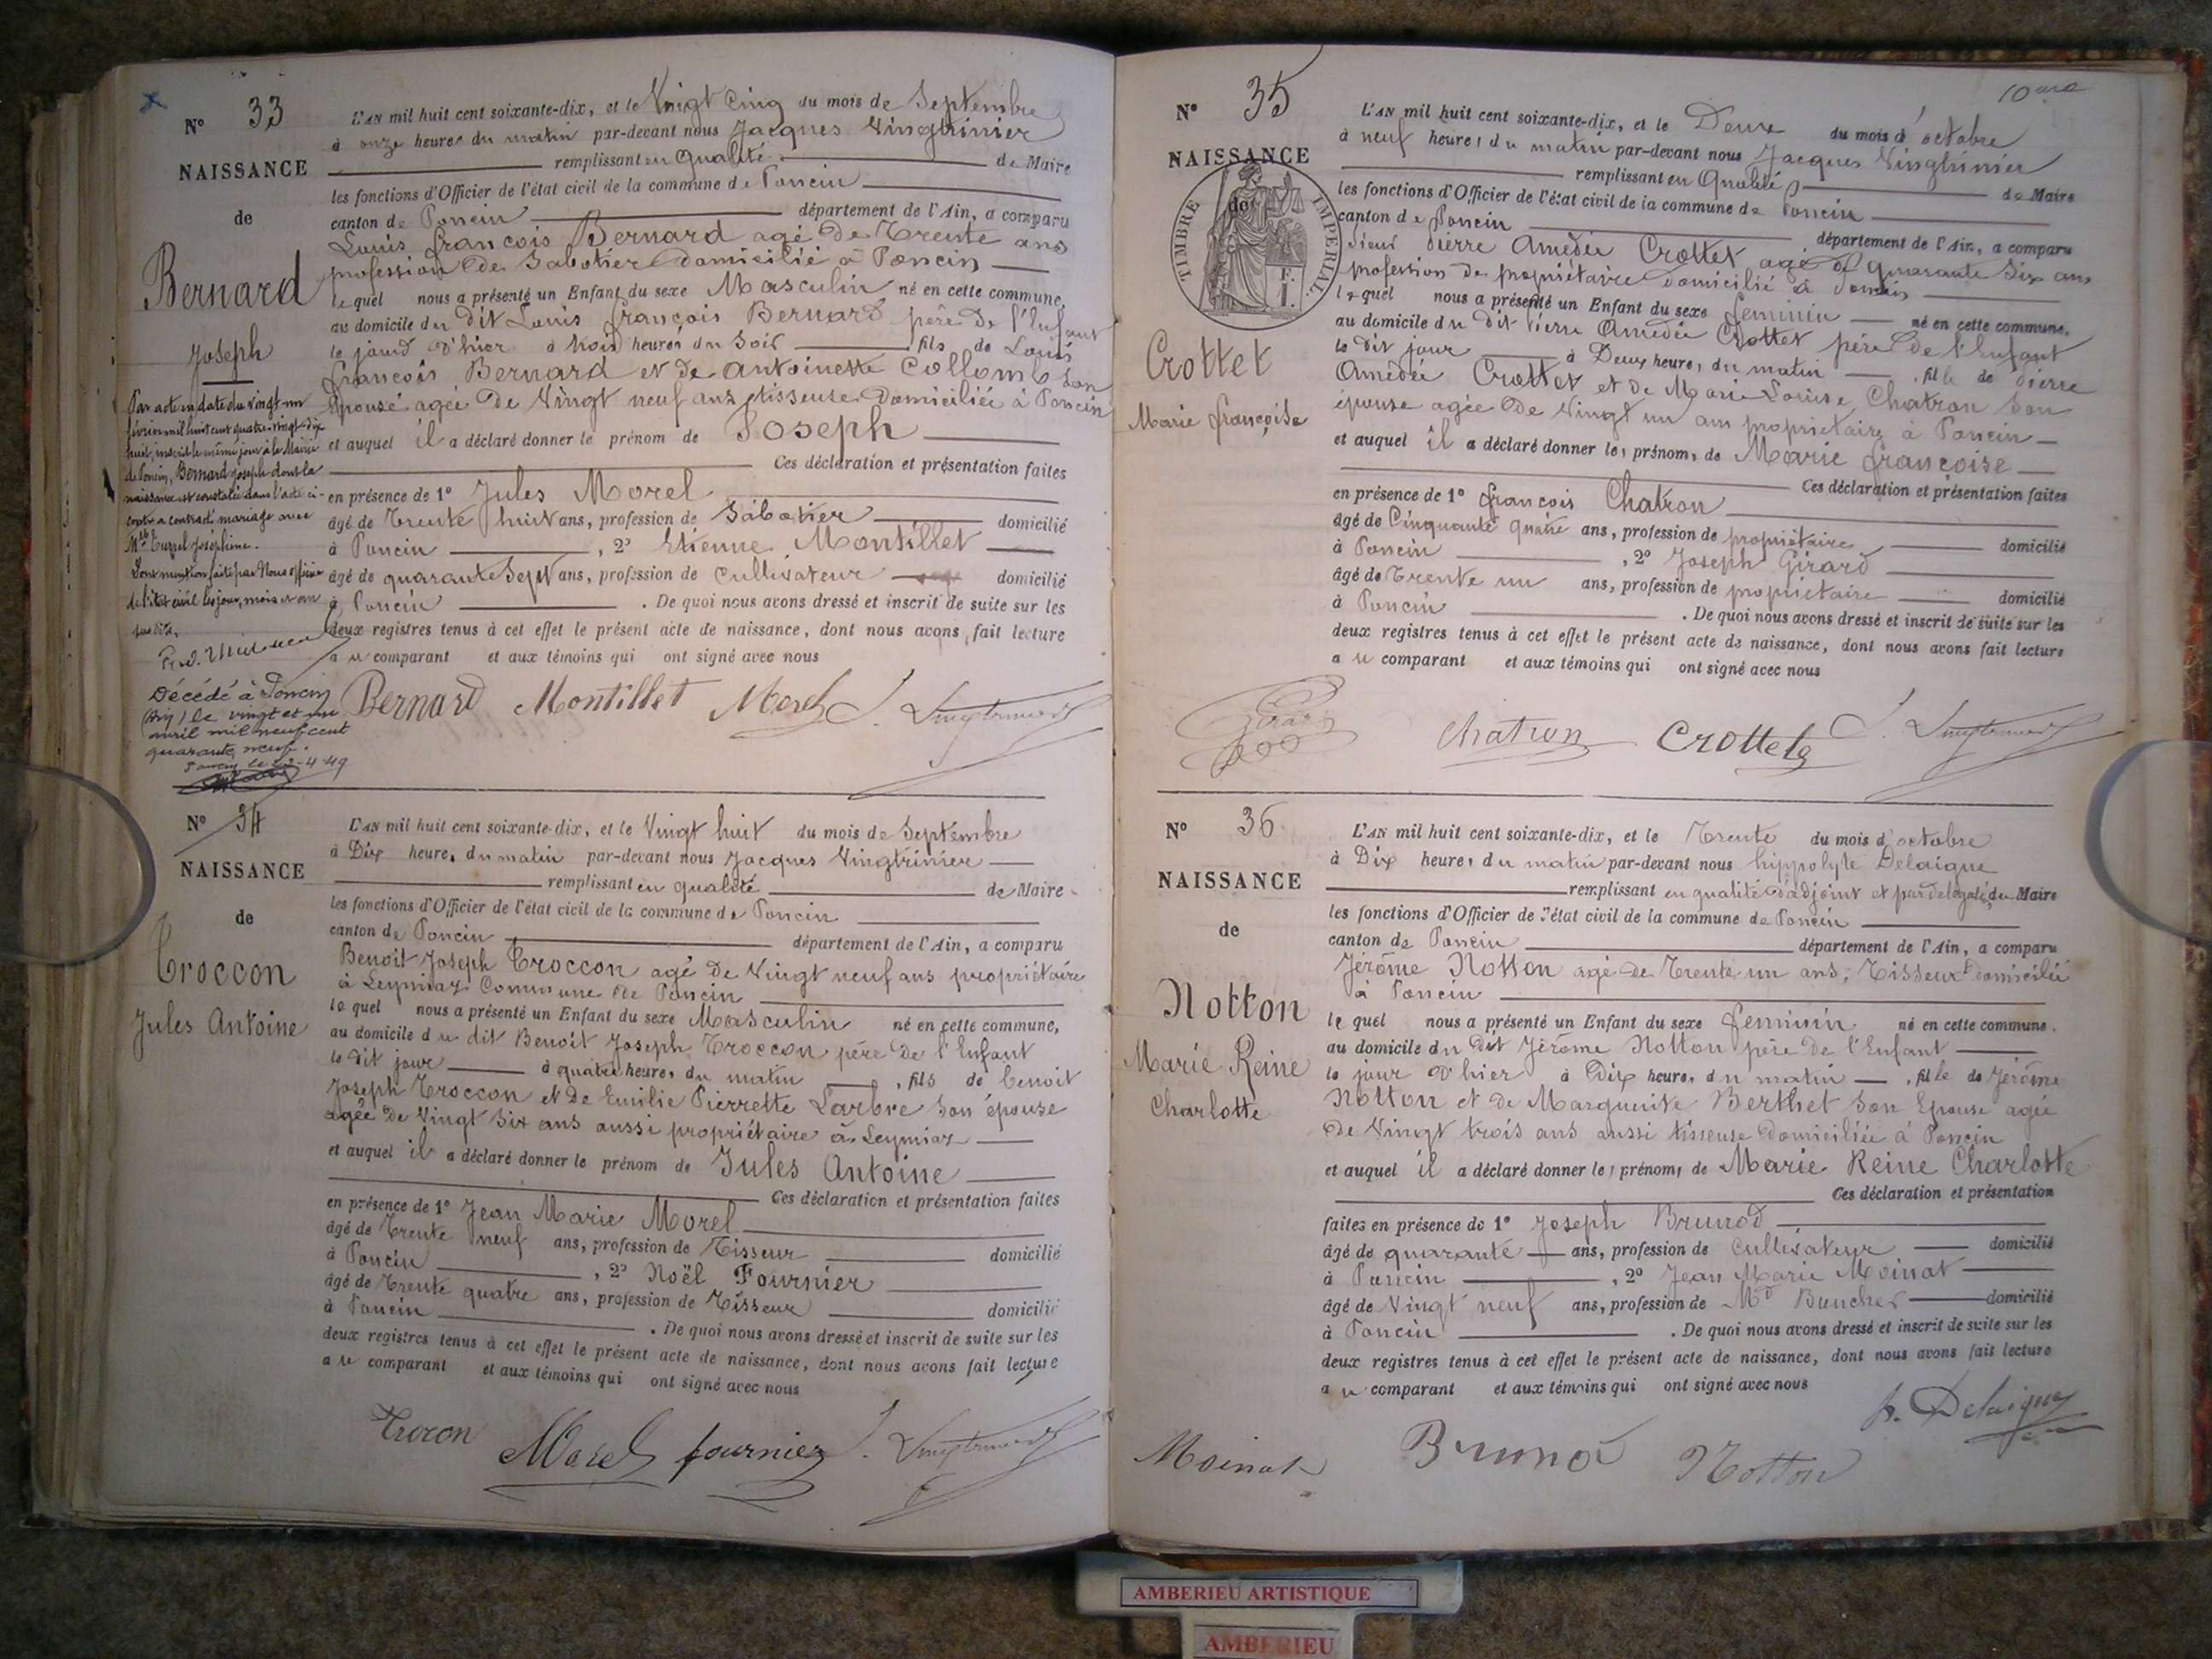 N° 33
NAISSANCE
de
Bernard
Joseph
Par acte en date du vingt un
février mil huit cent quatre-vingt-dix
huit, inscrit le même jour à la Mairie
de Poncin, Bernard Joseph dont la
naissance est constatée dans l'acte ci-
contre a contracté mariage avec
Mlle Joséphine.
Dont mention faite par Nous officier
de l'état civil les jour, mois et an
que dits.
Décédé à Poncin
(Ain) le vingt et un
avril mil neuf cent
quarante neuf.
Poncin le -4-49
L'AN mil huit cent soixante-dix, et le Vingt Cinq du mois de Septembre
à onze heures du matin par-devant nous Jacques Vingtrinier
remplissant en qualité de Maire
les fonctions d'Officier de l'état civil de la commune de Poncin
canton de Poncin département de l'Ain, a comparu
Louis françois Bernard agé de Trente ans
profession de Sabotier domicilié à Poncin
lequel nous a présenté un Enfant du sexe Masculin né en cette commune,
au domicile du dit Louis françois Bernard père de l'Enfant
le jour d'hier à trois heures du soir , fils de Louis
françois Bernard et de Antoinette Collomb son
épouse agée de Vingt neuf ans tisseuse domiciliée à Poncin
et auquel il a déclaré donner le prénom de Joseph
Ces déclaration et présentation faites
en présence de 1° Jules Morel
âgé de Trente huit ans, profession de Sabotier domicilié
à Poncin , 2° Etienne Montillet
âgé de quarante Sept ans, profession de Cultivateur domicilié
à Poncin . De quoi nous avons dressé et inscrit de suite sur les
deux registres tenus à cet effet le présent acte de naissance, dont nous avons fait lecture
au comparant et aux témoins qui ont signé avec nous
Bernard Montillet Morel J. Vingtrinier
N° 34
NAISSANCE
de
Troccon
Jules Antoine
L'AN mil huit cent soixante-dix, et le Vingt huit du mois de Septembre
à Dix heures du matin par-devant nous Jacques Vingtrinier
remplissant en qualité de Maire
les fonctions d'Officier de l'état civil de la commune de Poncin
canton de Poncin département de l'Ain, a comparu
Benoit Joseph Troccon agé de Vingt neuf ans propriétaire
à Leymiaz Commune de Poncin
lequel nous a présenté un Enfant du sexe Masculin né en cette commune,
au domicile du dit Benoit Joseph Troccon père de l'Enfant
le dit jour à quatre heures du matin , fils de benoit
Joseph Troccon et de Emilie Pierrette Larbre son épouse
agée de Vingt six ans aussi propriétaire à Leymiaz
et auquel il a déclaré donner le prénom de Jules Antoine
Ces déclaration et présentation faites
en présence de 1° Jean Marie Morel
âgé de Trente neuf ans, profession de Tisseur domicilié
à Poncin , 2° Noël Fournier
âgé de Trente quatre ans, profession de Tisseur domicilié
à Poncin . De quoi nous avons dressé et inscrit de suite sur les
deux registres tenus à cet effet le présent acte de naissance, dont nous avons fait lecture
au comparant et aux témoins qui ont signé avec nous
Trocon Morel fournier J. Vingtrinier
N° 35
NAISSANCE
de
TIMBRE IMPERIAL
Crottet
Marie françoise
L'AN mil huit cent soixante-dix, et le Deux du mois d'octobre
à neuf heures du matin par-devant nous Jacques Vingtrinier
remplissant en Qualité de Maire
les fonctions d'Officier de l'état civil de la commune de Poncin
canton de Poncin département de l'Ain, a comparu
Sieur Pierre Amédée Crottet agé de quarante Six ans
profession de propriétaire domicilié à Poncin
lequel nous a présenté un Enfant du sexe feminin né en cette commune,
au domicile du dit Pierre Amédée Crottet père de l'Enfant
le dit jour à Deux heures du matin , fille de Pierre
Amédée Crottet et de Marie Louise Chatron son
épouse agée de Vingt un ans propriétaire à Poncin
et auquel il a déclaré donner les prénoms de Marie françoise
Ces déclaration et présentation faites
en présence de 1° françois Chatron
âgé de Cinquante quatre ans, profession de propriétaire domicilié
à Poncin , 2° Joseph Girard
âgé de Trente un ans, profession de propriétaire domicilié
à Poncin . De quoi nous avons dressé et inscrit de suite sur les
deux registres tenus à cet effet le présent acte de naissance, dont nous avons fait lecture
au comparant et aux témoins qui ont signé avec nous
Girard Chatron Crottet J. Vingtrinier
N° 36
NAISSANCE
de
Notton
Marie Reine
Charlotte
L'AN mil huit cent soixante-dix, et le Trente du mois d'octobre
à Dix heures du matin par-devant nous hippolyte Delaigue
remplissant en qualité d'adjoint et par délégation du Maire
les fonctions d'Officier de l'état civil de la commune de Poncin
canton de Poncin département de l'Ain, a comparu
Jérôme Notton agé de Trente un ans, Tisseur domicilié
à Poncin
lequel nous a présenté un Enfant du sexe feminin né en cette commune,
au domicile du dit Jérôme Notton père de l'Enfant
le jour d'hier à Dix heures du matin , fille de Jérôme
Notton et de Marguerite Berthet son Epouse agée
de Vingt trois ans aussi tisseuse domiciliée à Poncin
et auquel il a déclaré donner les prénoms de Marie Reine Charlotte
Ces déclaration et présentation
faites en présence de 1° Joseph Brunod
âgé de quarante ans, profession de Cultivateur domicilié
à Poncin , 2° Jean Marie Moinat
âgé de Vingt neuf ans, profession de Md Boucher domicilié
à Poncin . De quoi nous avons dressé et inscrit de suite sur les
deux registres tenus à cet effet le présent acte de naissance, dont nous avons fait lecture
au comparant et aux témoins qui ont signé avec nous
h. Delaigue
Moinat Brunod Notton
AMBERIEU ARTISTIQUE
AMBERIEU